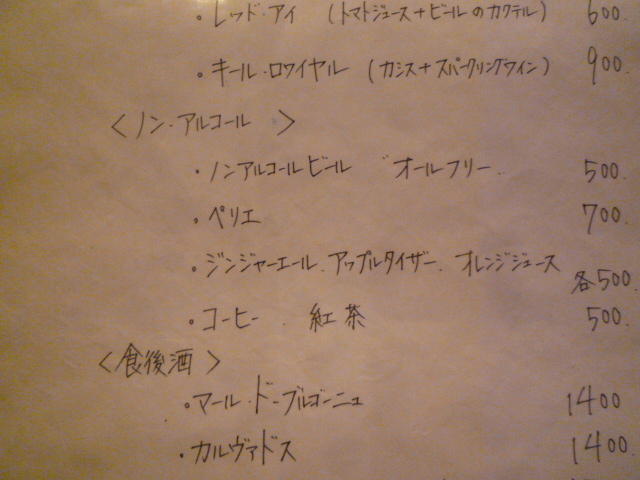 ・レッド・アイ (トマトジュース+ビールのカクテル) 600.
・キール・ロワイヤル (カシス+スパークリングワイン) 900.
〈ノン・アルコール 〉
・ノンアルコールビール オールフリー 500.
・ペリエ 700.
・ジンジャーエール、アップルタイザー、オレンジジュース 各500.
・コーヒー 、紅茶 500.
〈食後酒〉
・マール・ド・ブルゴーニュ 1400
・カルヴァドス 1400.